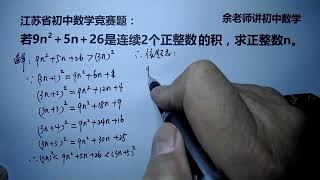 江苏省初中数学竞赛题： 余老师讲初中数学
若9n²+5n+26是连续2个正整数的积，求正整数n。
9n²+5n+26>(3n)²
∵(3n+1)²=9n²+6n+1
(3n+2)²=9n²+12n+4
(3n+3)²=9n²+18n+9
(3n+4)²=9n²+24n+16
(3n+5)²=9n²+30n+25
∴(3n)²<9n²+5n+26<(3n+5)²